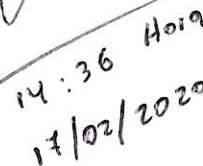 14:36 Hora
17/02/2020